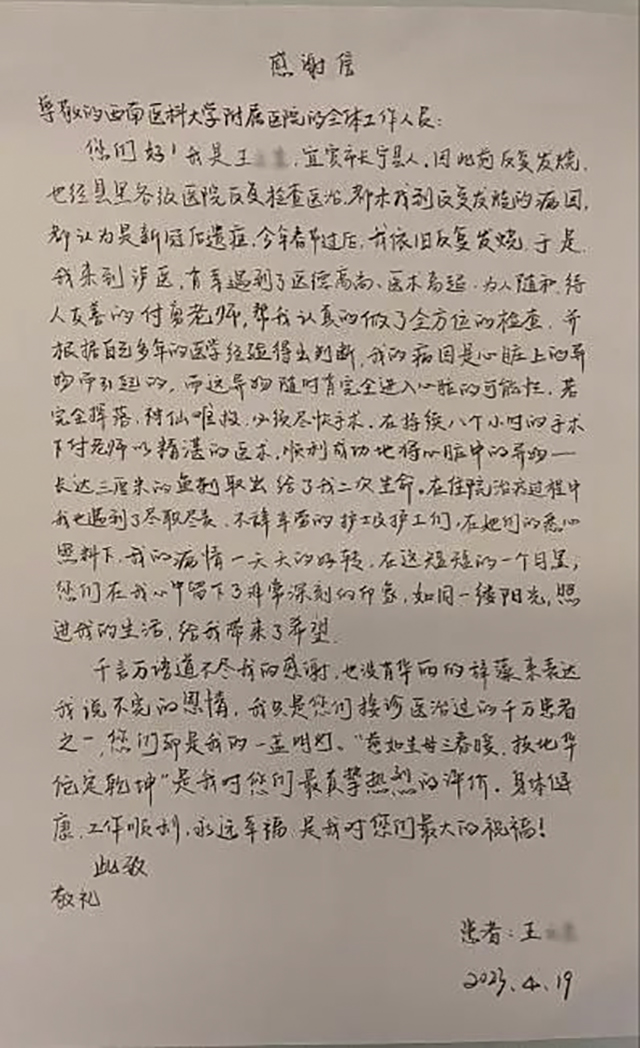 感谢信
尊敬的西南医科大学附属医院的全体工作人员：
您们好！我是王，宜宾市长宁县人，因此前反复发烧，
也经县里各级医院反复检查医治，都未找到反复发烧的病因，
都认为是新冠后遗症，今年春节过后，我依旧反复发烧，于是，
我来到泸医，有幸遇到了医德高尚、医术高超、为人随和、待
人友善的付勇老师，帮我认真的做了全方位的检查，并
根据自己多年的医学经验得出判断，我的病因是心脏上的异
物而引起的，而这异物随时有完全进入心脏的可能性，若
完全掉落，神仙难救，必须尽快手术。在持续八个小时的手术
下付老师以精湛的医术，顺利成功地将心脏中的异物一
长达三厘米的鱼刺取出给了我二次生命。在住院治病过程中
我也遇到了尽职尽责、不辞辛劳的护士及护工们，在她们的悉心
照料下，我的病情一天天的好转，在这短短的一个月里，
您们在我心中留下了非常深刻的印象，如同一缕阳光，照
进我的生活，给我带来了希望。
千言万语道不尽我的感谢，也没有华丽的辞藻来表达
我说不完的恩情，我只是您们接诊医治过的千万患者
之一，您们却是我的一盏明灯。“慈如生母三春暖，技比华
佗定乾坤”是我对您们最真挚热烈的评价。身体健
康、工作顺利，永远幸福是我对您们最大的祝福！
此致
敬礼
患者：王
2023.4.19